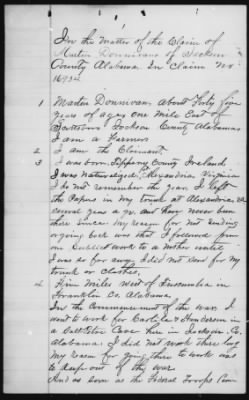 In the Matter of the Claim of
Martin Donnivans of Jackson
County Alabama In Claim No
1 Martin Donnivans, About Forty five
years of age, one Mile East of
Jackson County Alabama
I am a Farmer
2 I am the Claimant
3 I was born Tipperary County Ireland
I was Naturalized, Alexandria Virginia
I do not remember the year I left
the Papers in my trunk at Alexandria,
years ago. and have never been
there since my reason for not sending
or going back was that I followed from
one Public work to a nother until
I was so far away I did not send for my
trunk or Clothes.
4 Five Miles West of Tuscumbia in
Franklin Co. Alabama.
In the Commencement of the war. I
went to work for & Henderson in
a Saltpeter Cave here in Jackson. Co.
Alabama. I did not work there long
My reason for going there to work was
to Keep out of the war
And as soon as the Federal Troops Came